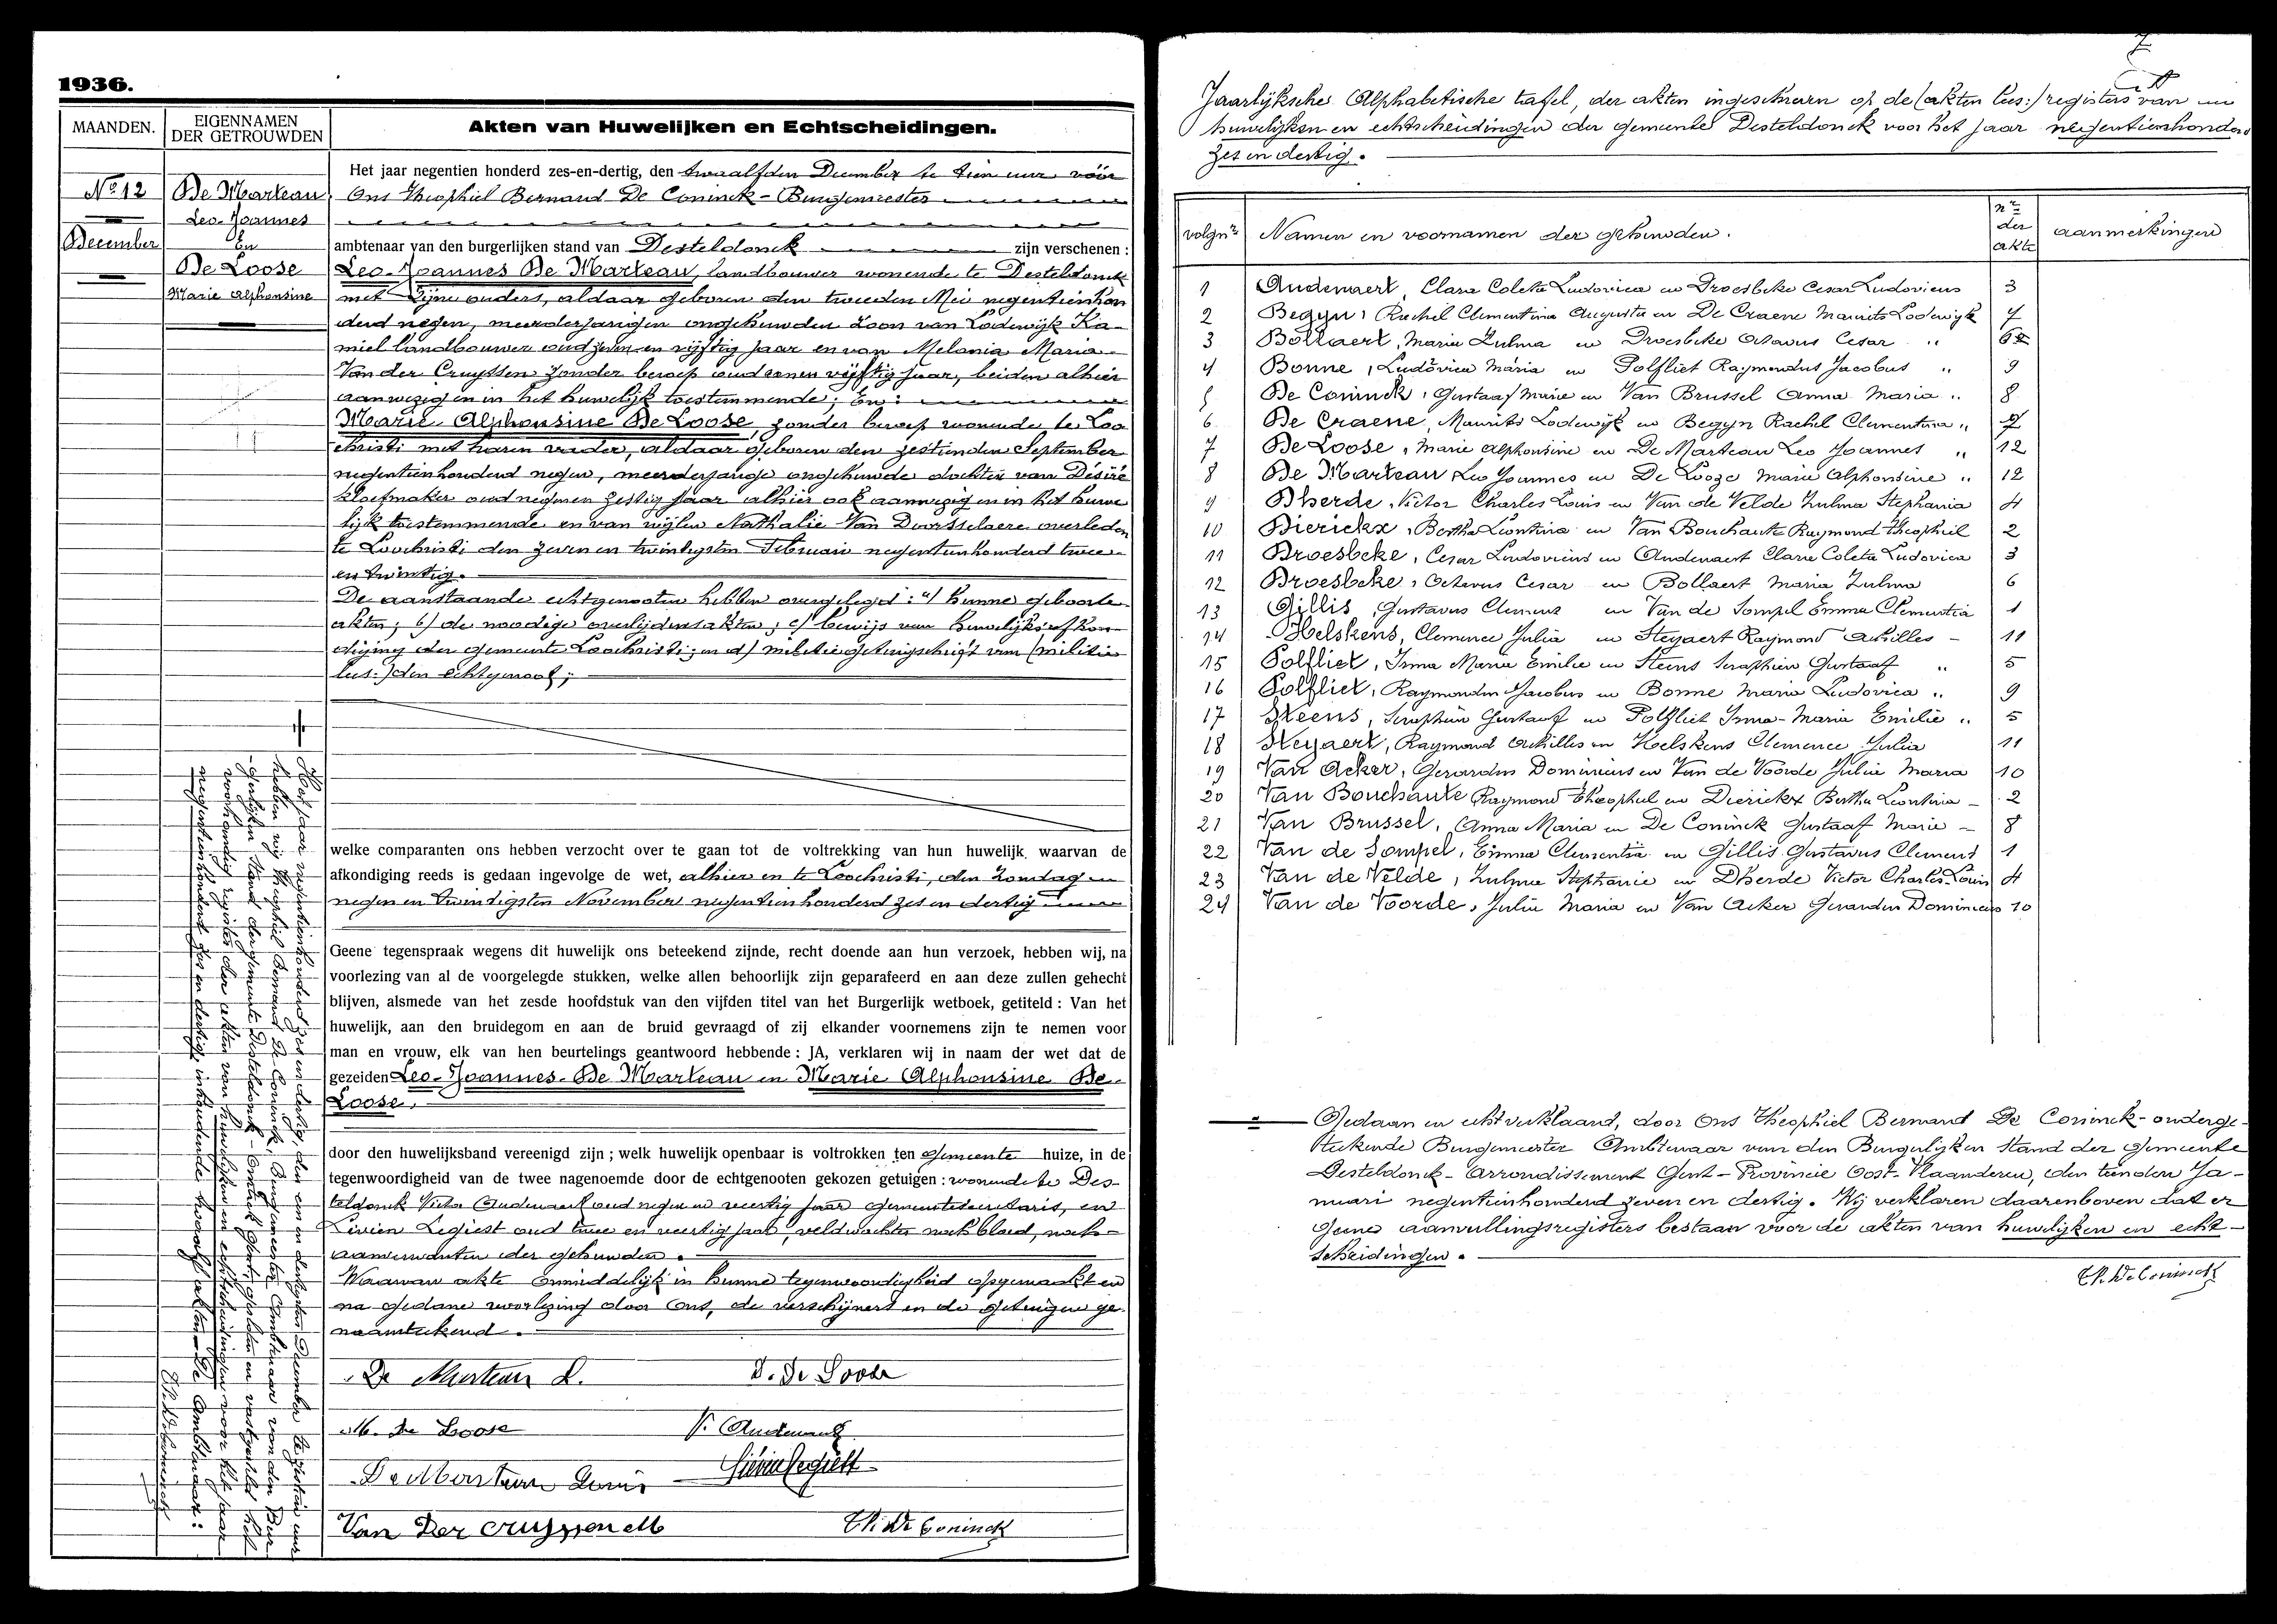 1936.
MAANDEN.
EIGENNAMEN
DER GETROUWDEN
Akten van Huwelijken en Echtscheidingen.
No 12
December
De Marteau
Leo-Joannes
En
De Loose
Marie Alphonsine
Het jaar negentien honderd zes-en-dertig, den twaalfden December te tien ure vóór
Ons Theophiel Bernard De Coninck - Burgemeester
ambtenaar van den burgerlijken stand van Desteldonck zijn verschenen :
Leo-Joannes De Marteau, landbouwer wonende te Desteldonck
met zijne ouders, aldaar geboren den tweeden Mei negentienhon
derd negen, meerderjarigen ongehuwden zoon van Lodewijk Ka-
miel landbouwer oud zeven en vijftig jaar en van Melania Maria
Van der Cruyssen zonder beroep oud eenen vijftig jaar, beiden alhier
aanwezig en in het huwelijk toestemmende; En :
Marie Alphonsine De Loose, zonder beroep wonende te Loo
christi met haren vader, aldaar geboren den zestienden September
negentienhonderd negen, meerderjarige ongehuwde dochter van Désiré
kloefmaker oud negenen zestig jaar alhier ook aanwezig en in het huwe
lijk toestemmende en van wijlen Nathalie Van Dursselaere overleden
te Loochristi den zeven en twintigsten Februari negentienhonderd twee
en twintig.
De aanstaande echtgenooten hebben overgelegd : a/ hunne geboorte
akten; b/ de noodige overlijdensakten; c/ bewijs van huwelijksafkon
diging der gemeente Loochristi; en d/ militie getuigschrift van (militie
lus:) den echtgenoot;
welke comparanten ons hebben verzocht over te gaan tot de voltrekking van hun huwelijk, waarvan de
afkondiging reeds is gedaan ingevolge de wet, alhier en te Loochristi, den Zondag
negen en twintigsten November negentienhonderd zes en dertig
Geene tegenspraak wegens dit huwelijk ons beteekend zijnde, recht doende aan hun verzoek, hebben wij, na
voorlezing van al de voorgelegde stukken, welke allen behoorlijk zijn geparafeerd en aan deze zullen gehecht
blijven, alsmede van het zesde hoofdstuk van den vijfden titel van het Burgerlijk wetboek, getiteld : Van het
huwelijk, aan den bruidegom en aan de bruid gevraagd of zij elkander voornemens zijn te nemen voor
man en vrouw, elk van hen beurtelings geantwoord hebbende : JA, verklaren wij in naam der wet dat de
gezeiden Leo-Joannes De Marteau en Marie Alphonsine De
Loose.
door den huwelijksband vereenigd zijn ; welk huwelijk openbaar is voltrokken ten Gemeente huize, in de
tegenwoordigheid van de twee nagenoemde door de echtgenooten gekozen getuigen : wonende te Des-
teldonck Victor Audenaert oud negen en veertig jaar Gemeentesecretaris, en
Livien Legiest oud twee en veertig jaar, veldwachter noch bloed, noch
aanverwanten der gehuwden.
Waarvan akte onmiddelijk in hunne tegenwoordigheid opgemaakt en
na gedane voorlezing door Ons, de verschijners en de getuigen ge
naamteekend.
De Marteau L.
D. De Loose
M. De Loose
V. Audenaert
De Marteau Louis
Livin Legiest
Van Der Cruyssen M
Th. De Coninck
Het jaar negentienhonderd zes en dertig, den een en dertigsten December te zestien ure
hebben wij Theophiel Bernard De Coninck, Burgemeester Ambtenaar van den Bur
gerlijken Stand der gemeente Desteldonck
voorhandig register der akten van huwelijken en echtscheidingen voor het jaar
negentienhonderd zes en dertig inhoudende twaalf akten - De Ambtenaar :
Th. De Coninck
Jaarlijksche Alphabetische tafel, der akten ingeschreven op de (akten lus:) registers van
huwelijken en echtscheidingen der gemeente Desteldonck voor het jaar negentienhonderd
zes en dertig.
volgnr Namen en voornamen der gehuwden. nr der akte aanmerkingen
1 Audenaert, Clara Coleta Ludovica en Droesbeke Cesar Ludovicus 3
2 Begyn, Rachel Clementina Augusta en De Craene Maurits Lodewijk 7
3 Bollaert, Maria Zulma en Droesbeke Octavus Cesar " 6
4 Bonne, Ludovica Maria en Polfliet Raymondus Jacobus " 9
5 De Coninck, Gustaaf Marie en Van Brussel Anna Maria " 8
6 De Craene, Maurits Lodewijk en Begyn Rachel Clementina " 7
7 De Loose, Marie Alphonsine en De Marteau Leo Joannes " 12
8 De Marteau Leo Joannes en De Looze Marie Alphonsine " 12
9 Dherde, Victor Charles Louis en Van de Velde Zulma Stephania 4
10 Dierickx, Bertha Leontina en Van Bouchaute Raymond Theophiel 2
11 Droesbeke, Cesar Ludovicus en Audenaert Clara Coleta Ludovica 3
12 Droesbeke, Octavus Cesar en Bollaert Maria Zulma 6
13 Gillis, Gustavus Clement en Van de Sompel Emma Clementia 1
14 Hoelskens, Clemence Julia en Steyaert Raymond Achilles - 11
15 Polfliet, Irma Maria Emilie en Steens Seraphien Gustaaf " 5
16 Polfliet, Raymondus Jacobus en Bonne Maria Ludovica " 9
17 Steens, Seraphien Gustaaf en Polfliet Irma-Maria Emilie " 5
18 Steyaert, Raymond Achilles en Hoelskens Clemence Julia 11
19 Van Acker, Gerardus Dominicus en Van de Voorde Julia Maria 10
20 Van Bouchaute Raymond Theophiel en Dierickx Bertha Leontina - 2
21 Van Brussel, Anna Maria en De Coninck Gustaaf Marie - 8
22 Van de Sompel, Emma Clementia en Gillis Gustavus Clement 1
23 Van de Velde, Zulma Stephanie en Dherde Victor Charles Louis 4
24 Van de Voorde, Julia Maria en Van Acker Gerardus Dominicus 10
Gedaan en echt verklaard, door Ons Theophiel Bernard De Coninck - onderge-
teekende Burgemeester Ambtenaar van den Burgerlijken Stand der Gemeente
Desteldonck - Arrondissement Gent - Provincie Oost-Vlaanderen, den tienden Ja-
nuari negentienhonderd zeven en dertig. Wij verklaren daarenboven dat er
geene aanvullingsregisters bestaan voor de akten van huwelijken en echt-
scheidingen.
Th. De Coninck